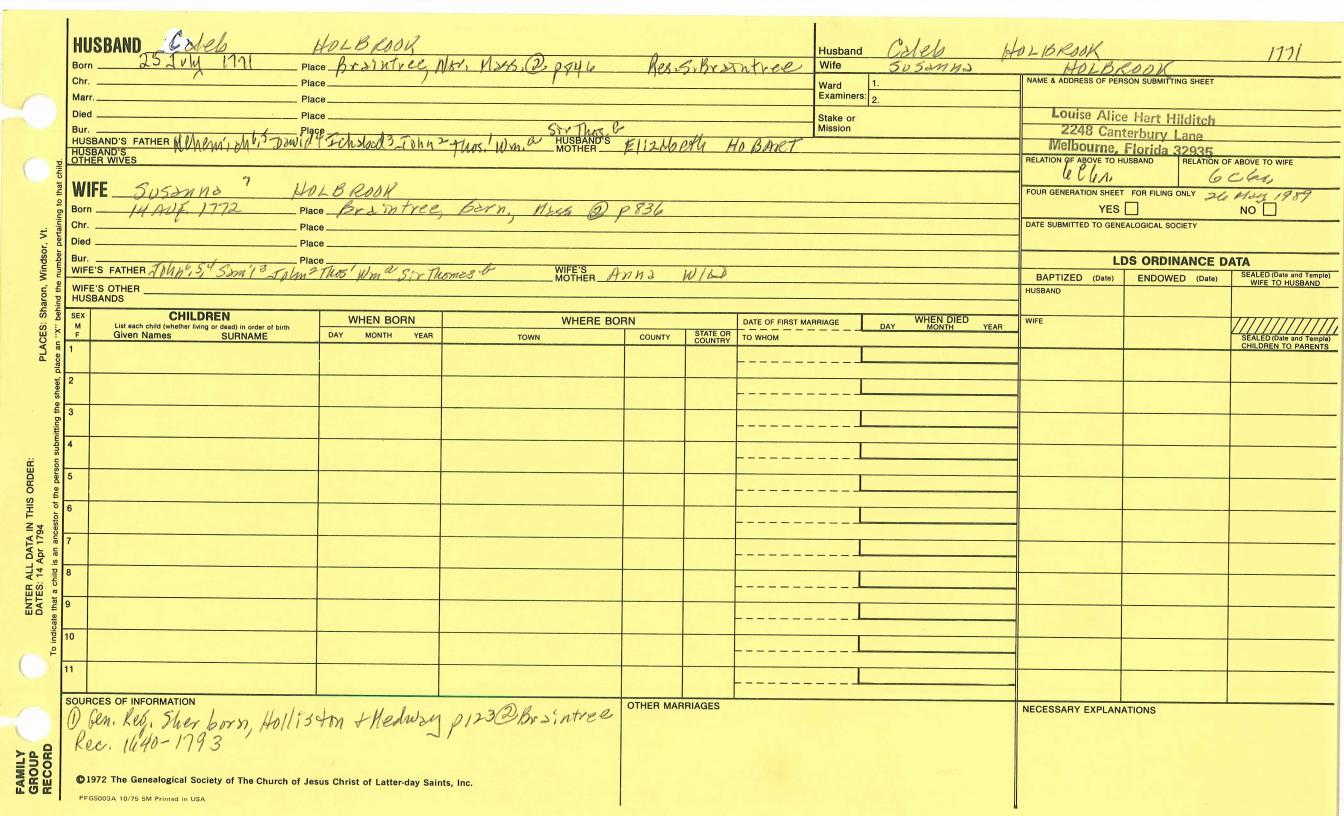 HUSBAND Caleb HOLBROOK
Born 25 July 1771 Place Braintree, Nor. Mass. ② p846 Res. S. Braintree
Chr. Place
Marr. Place
Died Place
Bur. Place Sir Thos. b
HUSBAND'S FATHER David 4 Ichabod 3 John 2 Thos. 1 Wm. a HUSBAND'S MOTHER Elizabeth HOBART
HUSBAND'S OTHER WIVES
WIFE Susanna 7 HOLBROOK
Born 14 Aug. 1772 Place Braintree, Mass ② p836
Chr. Place
Died Place
Bur. Place
WIFE'S FATHER John 6, 5, 4 Sam'l 3 John 2 Thos 1 Wm a Sir Thomas b WIFE'S MOTHER Anna WILD
WIFE'S OTHER HUSBANDS
Husband Caleb HOLBROOK 1771
Wife Susanna HOLBROOK
Ward Examiners: 1.
2.
Stake or Mission
NAME & ADDRESS OF PERSON SUBMITTING SHEET
Louise Alice Hart Hilditch
2248 Canterbury Lane
Melbourne, Florida 32935
RELATION OF ABOVE TO HUSBAND RELATION OF ABOVE TO WIFE
FOUR GENERATION SHEET FOR FILING ONLY 26 May 1989
YES NO
DATE SUBMITTED TO GENEALOGICAL SOCIETY
LDS ORDINANCE DATA
BAPTIZED (Date) ENDOWED (Date) SEALED (Date and Temple) WIFE TO HUSBAND
HUSBAND
WIFE
SEALED (Date and Temple) CHILDREN TO PARENTS
SEX M F CHILDREN WHEN BORN WHERE BORN DATE OF FIRST MARRIAGE WHEN DIED
List each child (whether living or dead) in order of birth
Given Names SURNAME DAY MONTH YEAR TOWN COUNTY STATE OR COUNTRY TO WHOM DAY MONTH YEAR
1
2
3
4
5
6
7
8
9
10
11
SOURCES OF INFORMATION
① Gen. Reg. Sherborn, Holliston & Medway p123 ② Braintree
Rec. 1640-1793
OTHER MARRIAGES
NECESSARY EXPLANATIONS
©1972 The Genealogical Society of The Church of Jesus Christ of Latter-day Saints, Inc.
PFGS003A 10/75 5M Printed in USA
PLACES: Sharon, Windsor, Vt.
ENTER ALL DATA IN THIS ORDER:
DATES: 14 Apr 1794
To indicate that a child is an ancestor of the person submitting the sheet, place an "X" behind the number pertaining to that child.
FAMILY
GROUP
RECORD